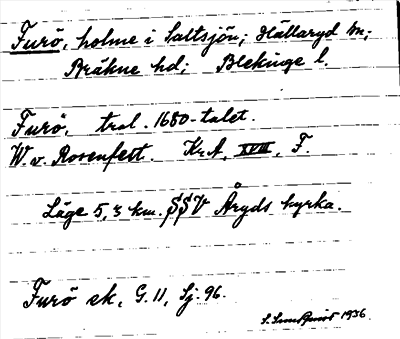 Furö, holme i Saltsjön; Hällaryd sn;
Bräkne hd; Blekinge l.
Furö, trol. 1680-talet.
W. v. Rosenfelt. Kr.A, XVIII, F.
Läge 5,3 km. SSV Åryds kyrka.
Furö ek, G. 11, Sj. 96.
S. Sundquist 1936.